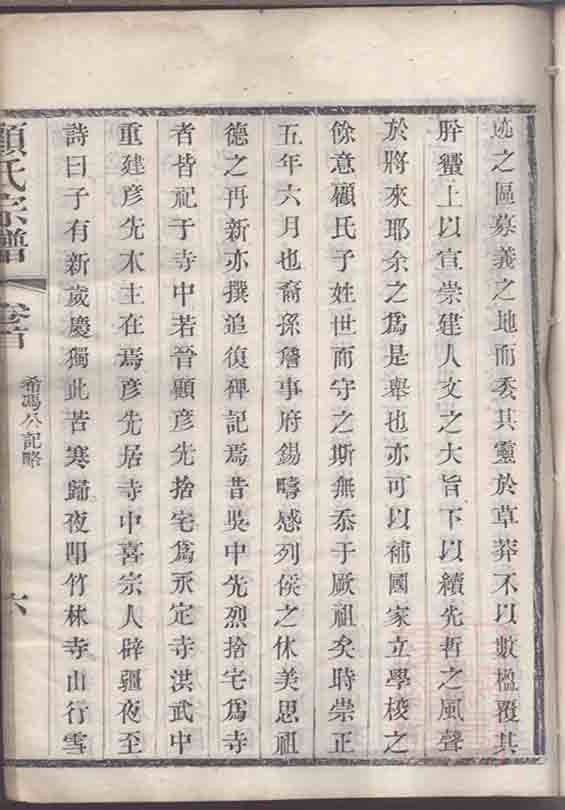 迹之區募義之地而委其靈於草莽不以數楹覆其
肸蠁上以宣崇建人文之大旨下以續先哲之風聲
於將來耶余之為是舉也亦可以補國家立學校之
餘意顧氏子姓世而守之斯無忝于厥祖矣時崇正
五年六月也裔孫詹事府錫疇感列侯之休美思祖
德之再新亦撰追復碑記焉昔吳中先烈捨宅為寺
者皆祀于寺中若晉顧彥先捨宅為永定寺洪武中
重建彥先木主在焉彥先居寺中喜宗人辟疆夜至
詩曰子有新歲慶獨此苦寒歸夜叩竹林寺山行雪
顧氏宗譜
卷首
希馮公記略
六